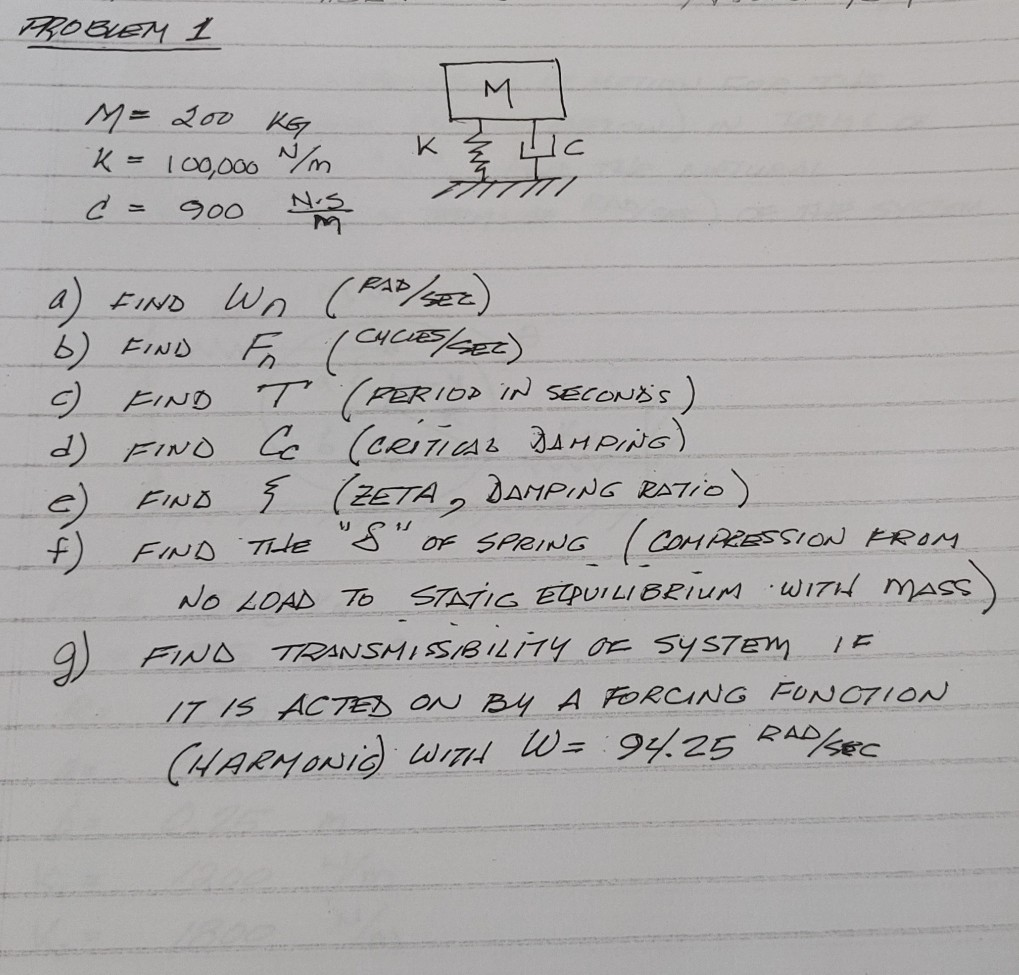 PROBLEM 1
M
M = 200 KG
K = 100,000 N/m
K
C
C = 900 N·S/M
a) FIND Wn (RAD/SEC)
b) FIND Fn (CYCLES/SEC)
c) FIND T (PERIOD IN SECONDS)
d) FIND Cc (CRITICAL DAMPING)
e) FIND ξ (ZETA, DAMPING RATIO)
f) FIND THE "δ" OF SPRING (COMPRESSION FROM
NO LOAD TO STATIC EQUILIBRIUM WITH MASS)
g) FIND TRANSMISSIBILITY OF SYSTEM IF
IT IS ACTED ON BY A FORCING FUNCTION
(HARMONIC) WITH W = 94.25 RAD/SEC